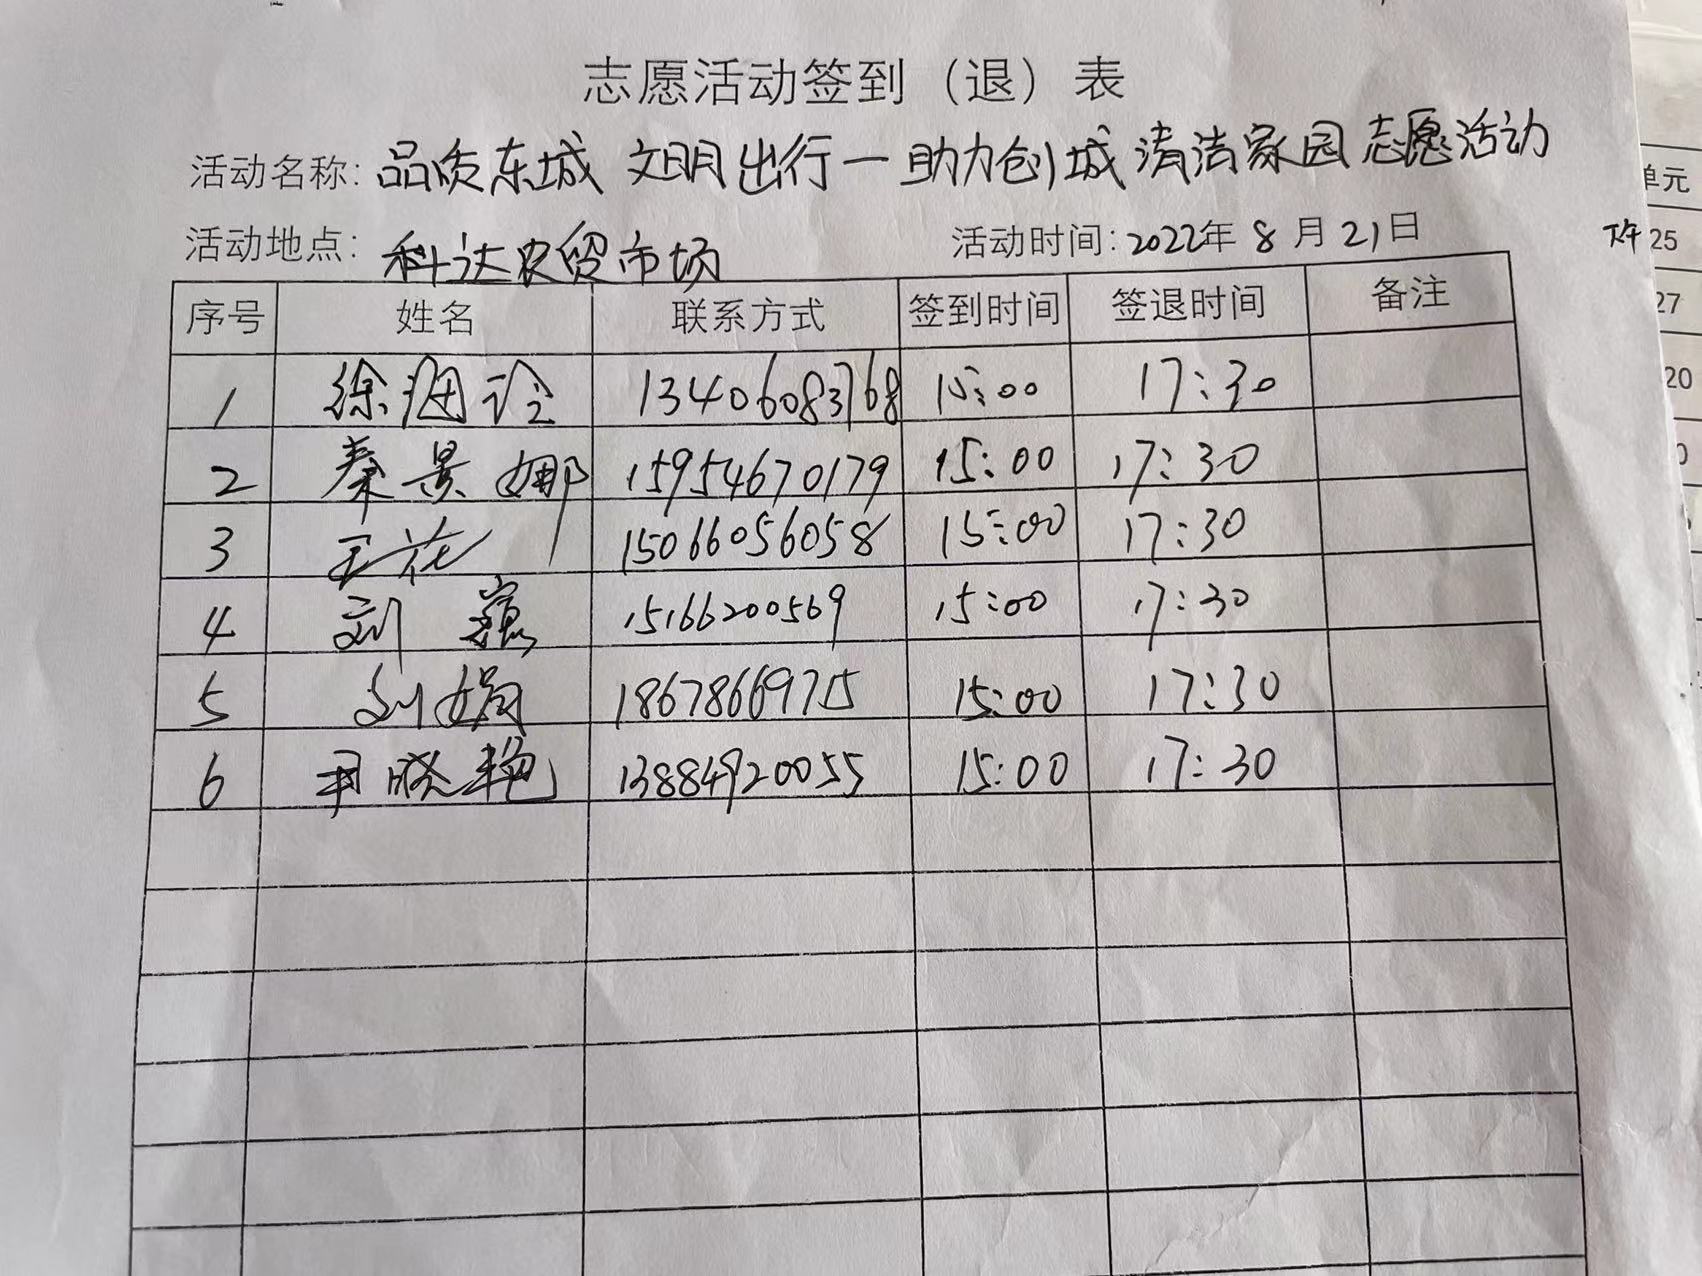 志愿活动签到（退）表
活动名称: 品质东城 文明出行一助力创城 清洁家园 志愿活动
活动地点: 科达农贸市场 活动时间: 2022年 8月21日
序号 姓名 联系方式 签到时间 签退时间 备注
1 徐 13406083768 15:00 17:30
2 秦景娜 15954670179 15:00 17:30
3 王花 15066056058 15:00 17:30
4 刘 15166200569 15:00 17:30
5 刘娟 18678669715 15:00 17:30
6 尹晓艳 13884920055 15:00 17:30
单元
25
27
20